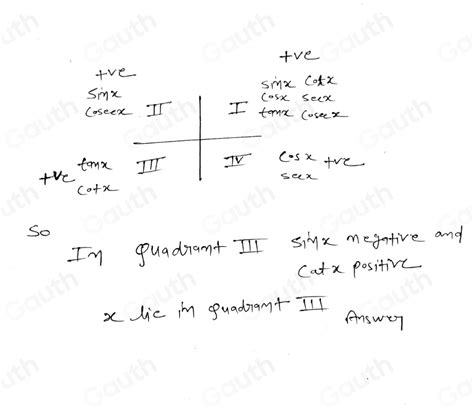 +ve
+ve
sinx
cosecx II
I sinx cotx
cosx secx
tanx cosecx
+ve tanx III
cotx
IV cosx +ve
secx
So
In quadrant III sinx negative and
catx positive
x lie in quadrant III Answer
Gauth